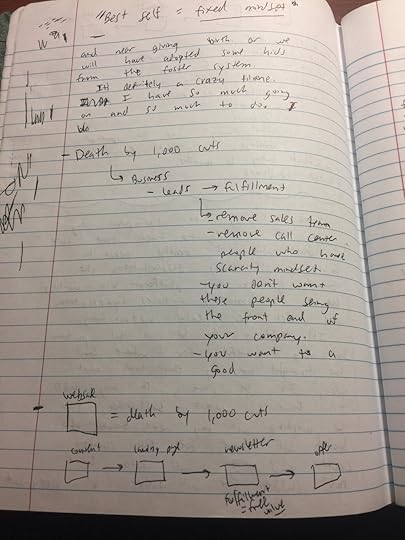 "Best self = fixed mindset"
and near giving birth or we
will have adopted some kids
from the foster system.
It's definitely a crazy time.
I have so much going
on and so much to do. I
do
- Death by 1,000 cuts
↳ Business
- leads → fulfillment
↳ - remove sales team
- remove call center
people who have
scarcity mindset.
- you don't want
these people being
the front end of
your company.
- you want to a
good
- website
= death by 1,000 cuts
content → landing page → newsletter → offer
fulfillment
= full value